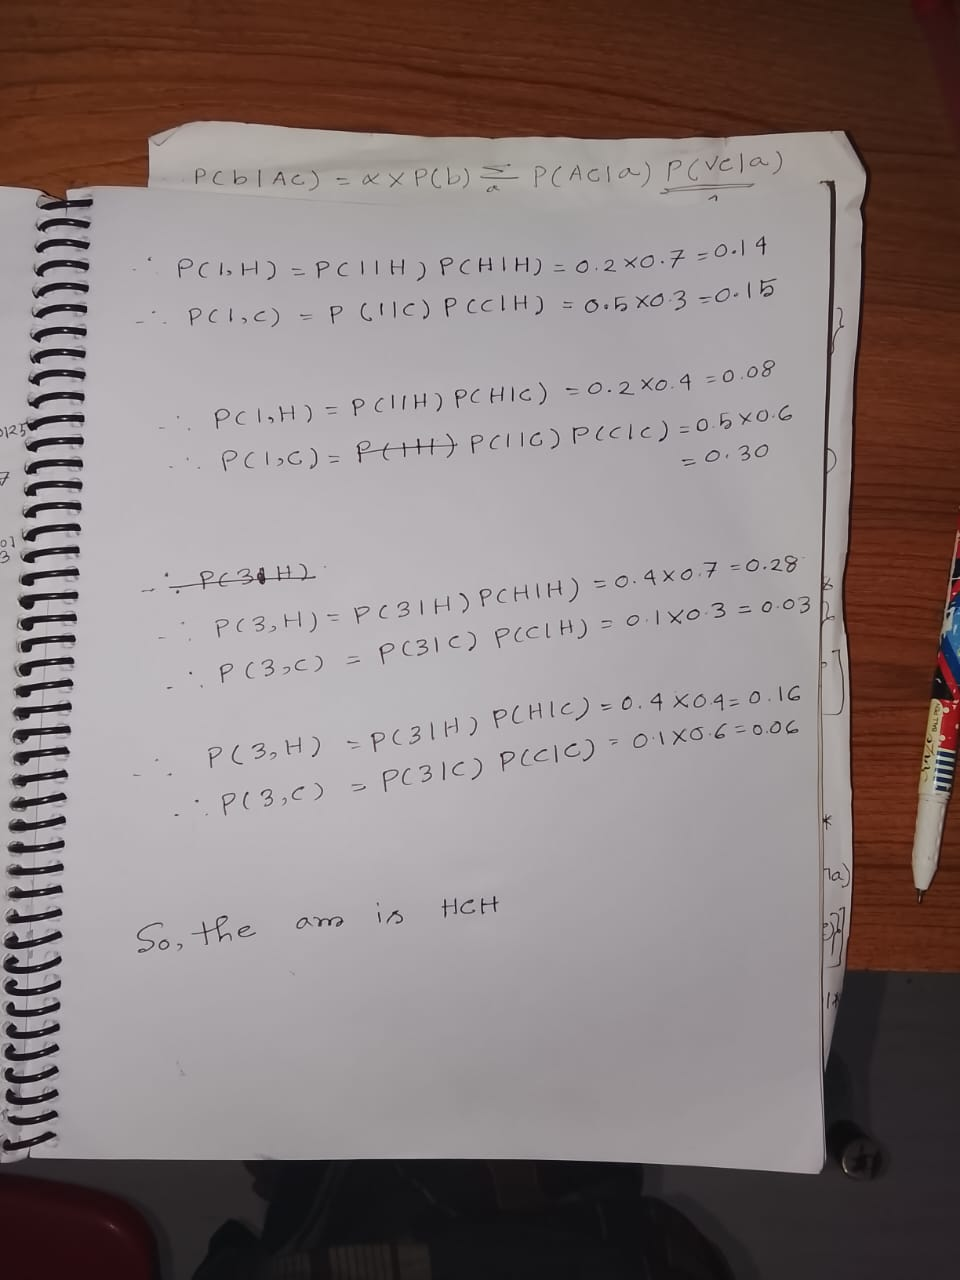 P(b|Ac) = α x P(b) Σ P(Ac|a) P(vc|a)
a
∴ P(1,H) = P(1|H) P(H|H) = 0.2 x 0.7 = 0.14
∴ P(1,C) = P(1|C) P(C|H) = 0.5 x 0.3 = 0.15
∴ P(1,H) = P(1|H) P(H|C) = 0.2 x 0.4 = 0.08
∴ P(1,C) = P(1|C) P(C|C) = 0.5 x 0.6
= 0.30
∴ P(3,H) = P(3|H) P(H|H) = 0.4 x 0.7 = 0.28
∴ P(3,C) = P(3|C) P(C|H) = 0.1 x 0.3 = 0.03
∴ P(3,H) = P(3|H) P(H|C) = 0.4 x 0.4 = 0.16
∴ P(3,C) = P(3|C) P(C|C) = 0.1 x 0.6 = 0.06
So, the ans is HCH
BALL PEN